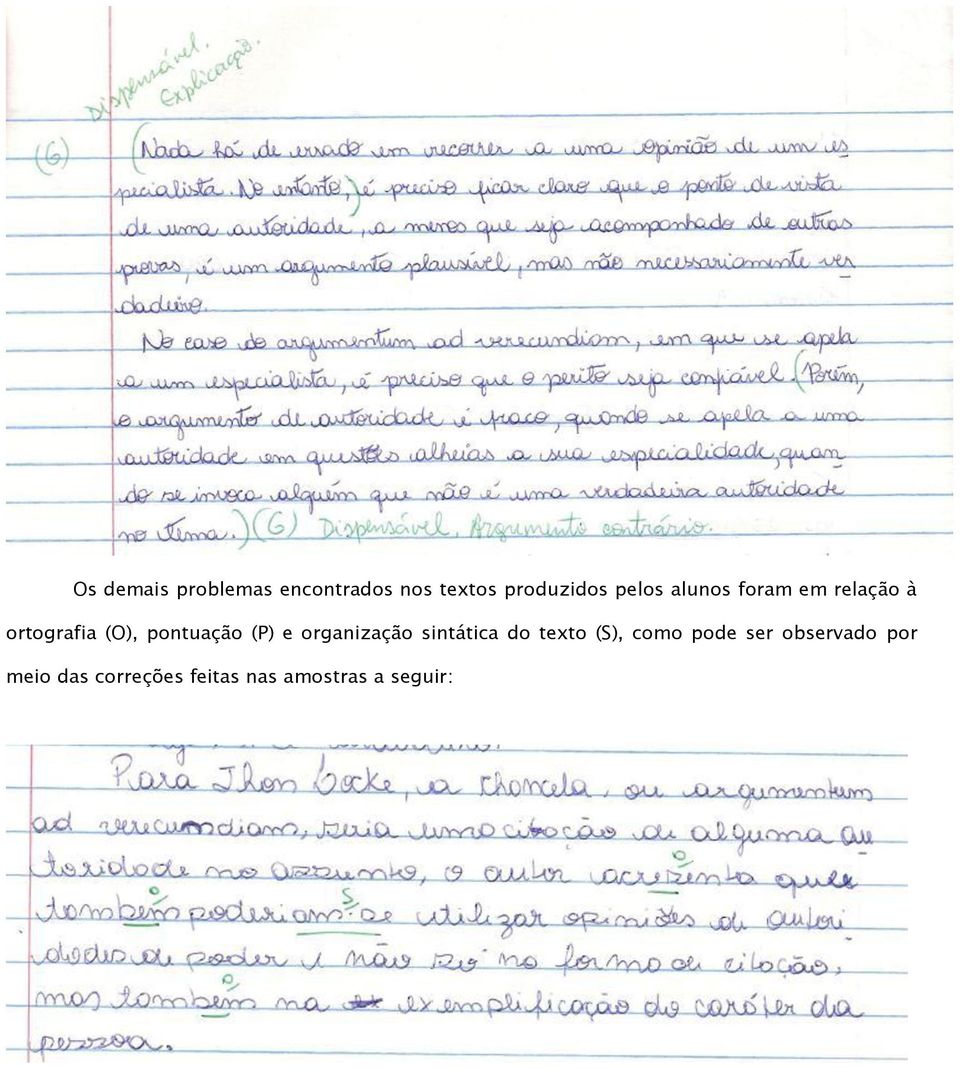 Dispensável.
Explicação.
(G) (Nada há de errado em recorrer a uma opinião de um es
pecialista. No entanto,) é preciso ficar claro que o ponto de vista
de uma autoridade, a menos que seja acompanhado de outras
provas, é um argumento plausível, mas não necessariamente ver
dadeiro.
No caso do argumentum ad verecundiam, em que se apela
a um especialista, é preciso que o perito seja confiável. (Porém,
o argumento de autoridade é fraco, quando se apela a uma
autoridade em questões alheias a sua especialidade, quan
do se invoca alguém que não é uma verdadeira autoridade
no tema.) (G) Dispensável. Argumento contrário.
Os demais problemas encontrados nos textos produzidos pelos alunos foram em relação à
ortografia (O), pontuação (P) e organização sintática do texto (S), como pode ser observado por
meio das correções feitas nas amostras a seguir:
Para Jhon Locke, a chancela, ou argumentum
ad verecumdiam, seria uma citação de alguma au
toridade no assunto, o autor acresenta que
O
tambem poderiam-se utilizar opiniões de autori
O S
dades de poder e não só no forma de citação,
mas tambem na exemplificação do caráter da
O
pessoa.